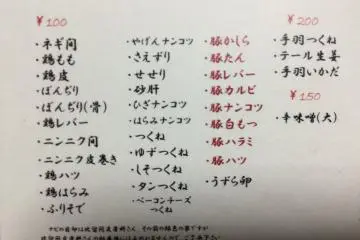 ¥100
・ネギ間
・鶏もも
・鶏皮
・ぼんぢり
・ぼんぢり(骨)
・鶏レバー
・ニンニク間
・ニンニク皮巻き
・鶏ハツ
・鶏はらみ
・ふりそで
・やげんナンコツ
・さえずり
・せせり
・砂肝
・ひざナンコツ
・はらみナンコツ
・つくね
・ゆずつくね
・しそつくね
・タンつくね
・ベーコンチーズ
つくね
・豚かしら
・豚たん
・豚レバー
・豚カルビ
・豚ナンコツ
・豚白もつ
・豚ハラミ
・豚ハツ
・うずら卵
¥200
・手羽つくね
・テール生姜
・手羽いかだ
¥150
・辛味噌(大)